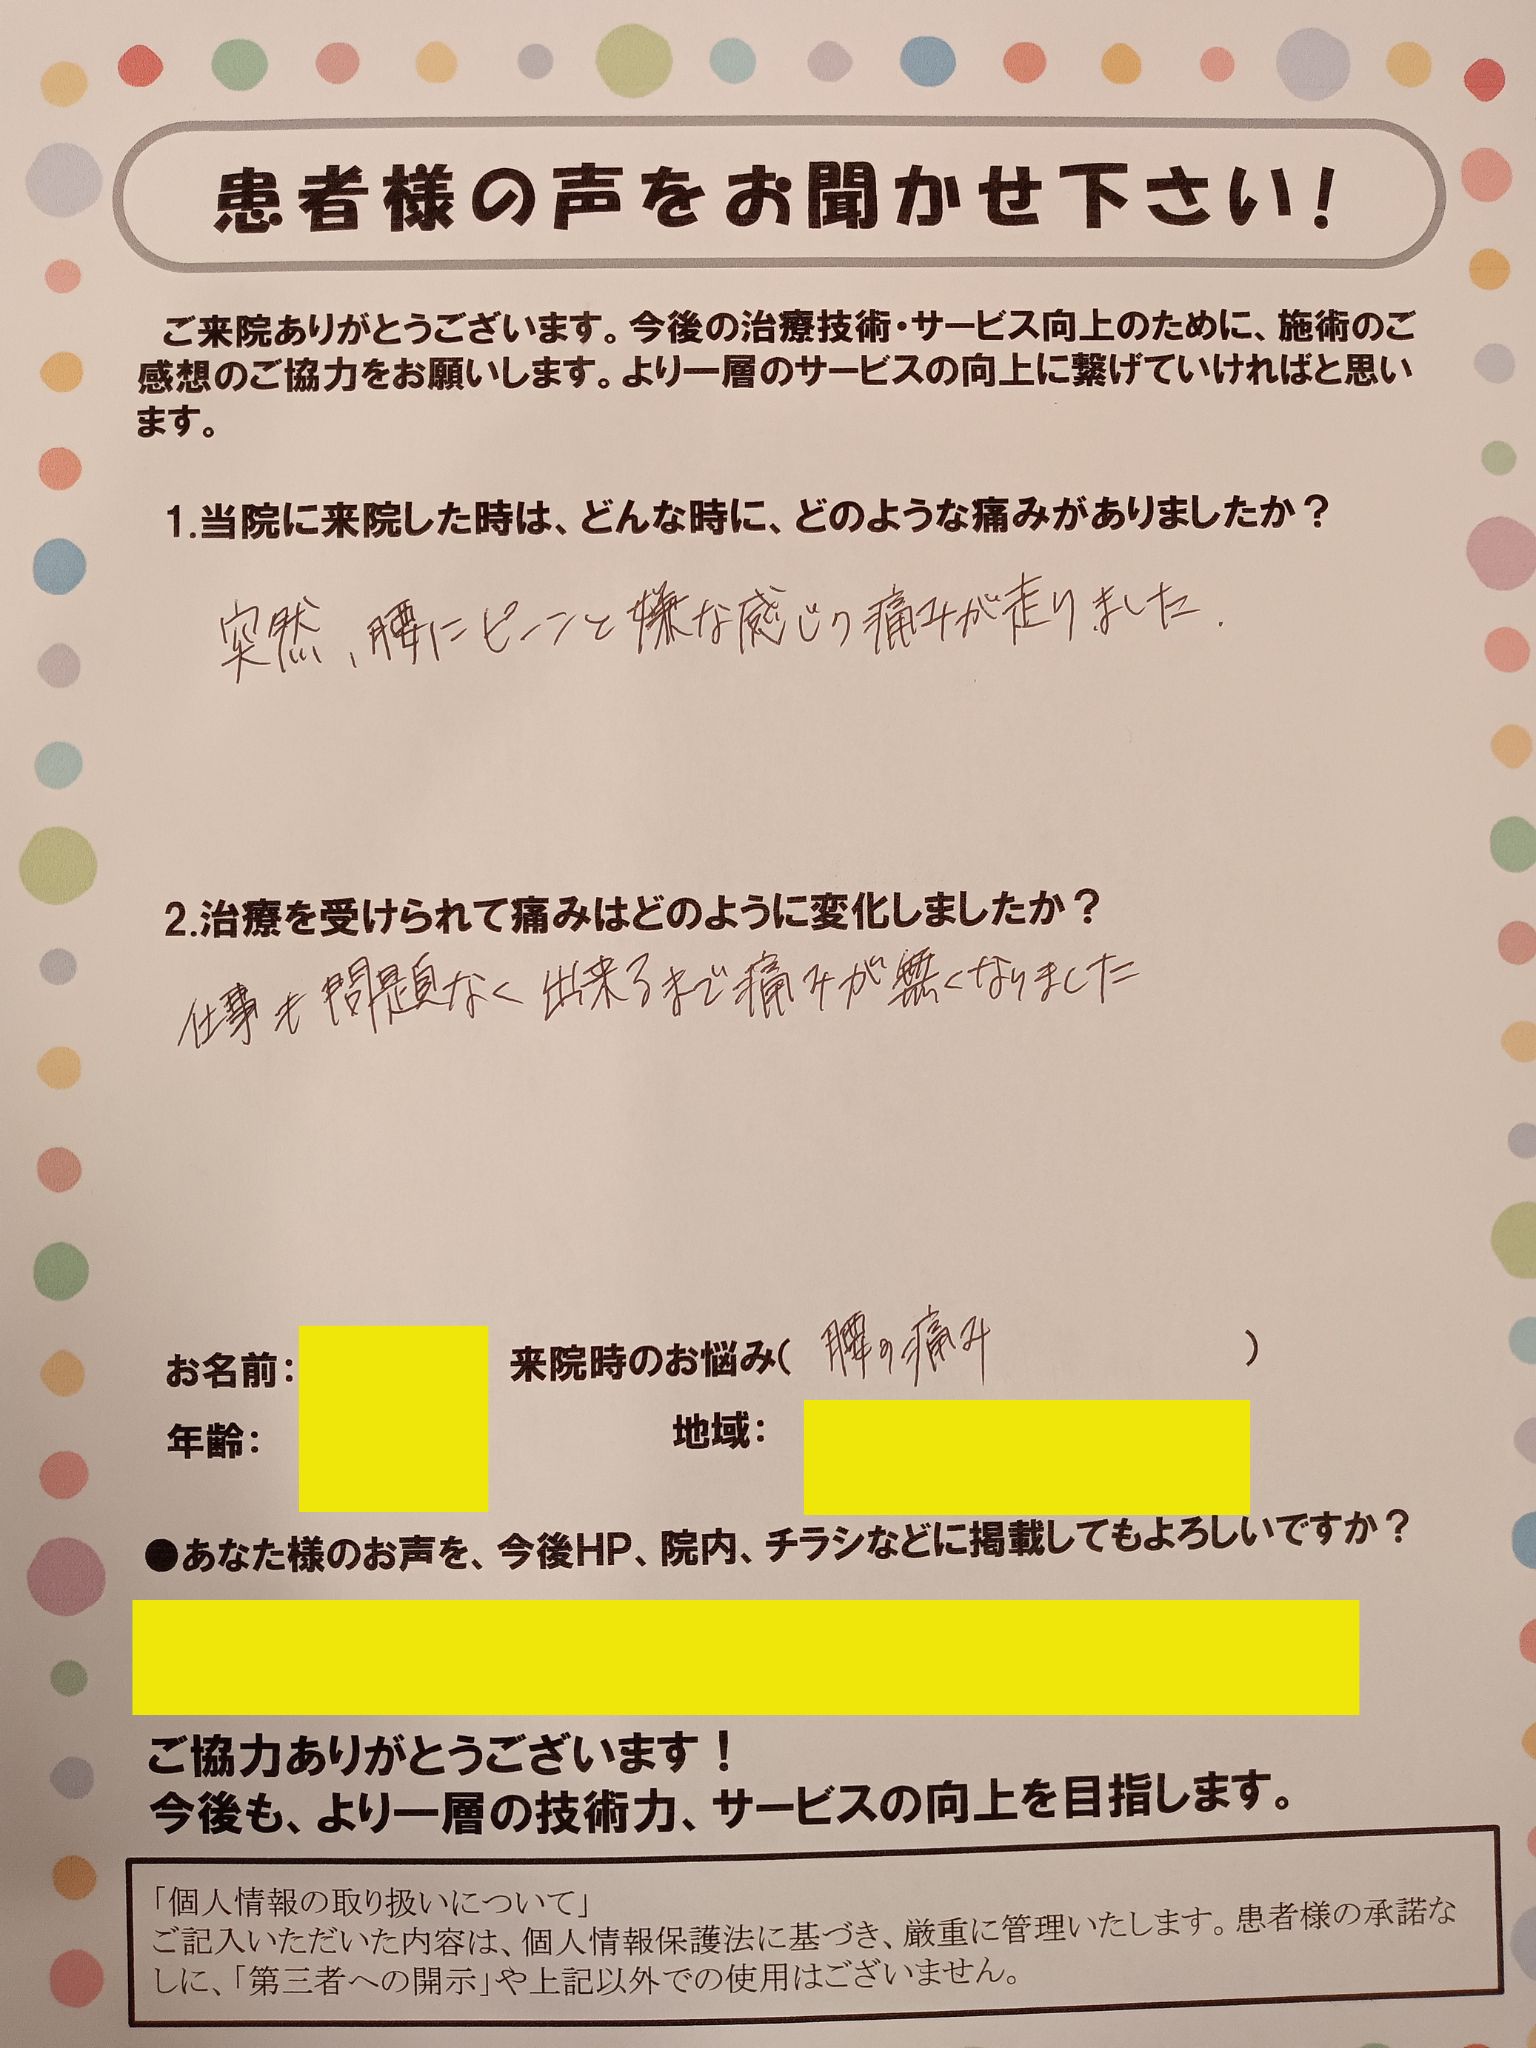 患者様の声をお聞かせ下さい!
ご来院ありがとうございます。今後の治療技術・サービス向上のために、施術のご
感想のご協力をお願いします。より一層のサービスの向上に繋げていければと思い
ます。
1.当院に来院した時は、どんな時に、どのような痛みがありましたか?
突然、腰にピーンと嫌な感じの痛みが走りました.
2.治療を受けられて痛みはどのように変化しましたか?
仕事も問題なく出来るまで痛みが無くなりました
お名前: 来院時のお悩み( 腰の痛み )
年齢: 地域:
●あなた様のお声を、今後HP、院内、チラシなどに掲載してもよろしいですか?
ご協力ありがとうございます!
今後も、より一層の技術力、サービスの向上を目指します。
「個人情報の取り扱いについて」
ご記入いただいた内容は、個人情報保護法に基づき、厳重に管理いたします。患者様の承諾な
しに、「第三者への開示」や上記以外での使用はございません。